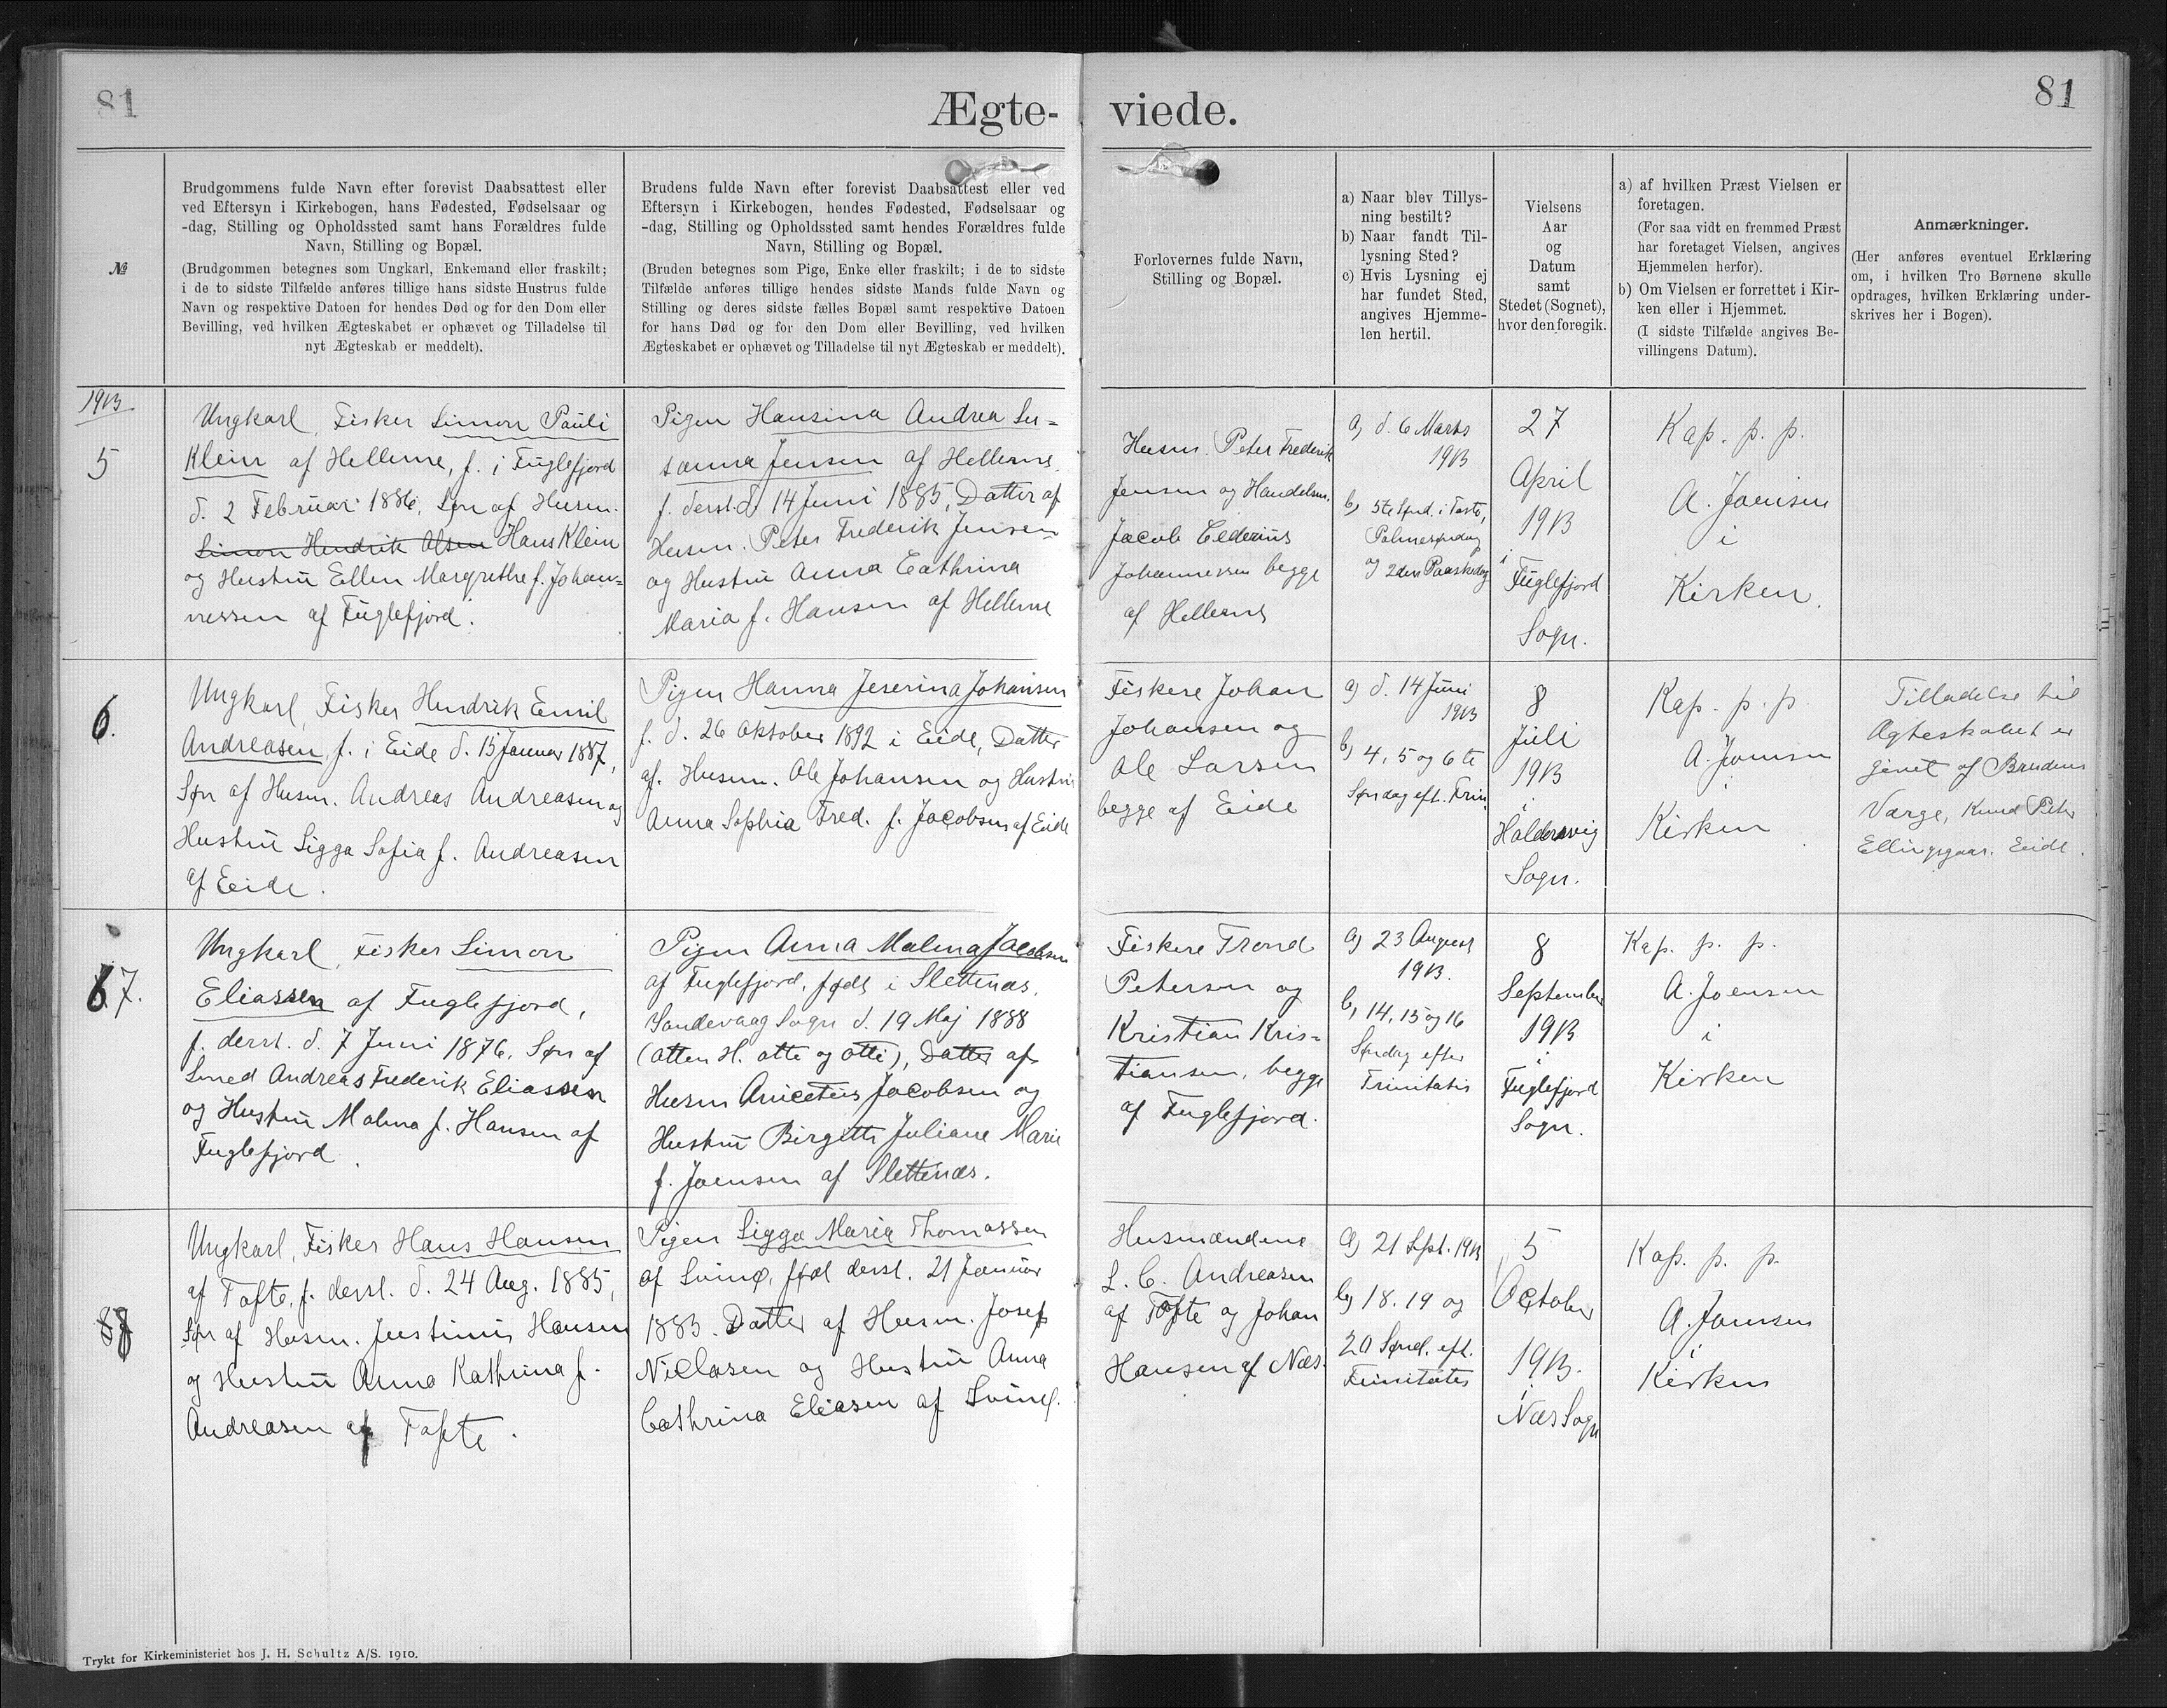 81
Ægte-
viede.
81
№
Brudgommens fulde Navn efter forevist Daabsattest eller
ved Eftersyn i Kirkebogen, hans Fødested, Fødselsaar og
-dag, Stilling og Opholdssted samt hans Forældres fulde
Navn, Stilling og Bopæl.
(Brudgommen betegnes som Ungkarl, Enkemand eller fraskilt;
i de to sidste Tilfælde anføres tillige hans sidste Hustrus fulde
Navn og respektive Datoen for hendes Død og for den Dom eller
Bevilling, ved hvilken Ægteskabet er ophævet og Tilladelse til
nyt Ægteskab er meddelt).
Brudens fulde Navn efter forevist Daabsattest eller ved
Eftersyn i Kirkebogen, hendes Fødested, Fødselsaar og
-dag, Stilling og Opholdssted samt hendes Forældres fulde
Navn, Stilling og Bopæl.
(Bruden betegnes som Pige, Enke eller fraskilt; i de to sidste
Tilfælde anføres tillige hendes sidste Mands fulde Navn og
Stilling og deres sidste fælles Bopæl samt respektive Datoen
for hans Død og for den Dom eller Bevilling, ved hvilken
Ægteskabet er ophævet og Tilladelse til nyt Ægteskab er meddelt).
Forlovernes fulde Navn,
Stilling og Bopæl.
a) Naar blev Tillys-
ning bestilt?
b) Naar fandt Til-
lysning Sted?
c) Hvis Lysning ej
har fundet Sted,
angives Hjemme-
len hertil.
Vielsens
Aar
og
Datum
samt
Stedet (Sognet),
hvor den foregik.
a) af hvilken Præst Vielsen er
foretagen.
(For saa vidt en fremmed Præst
har foretaget Vielsen, angives
Hjemmelen herfor).
b) Om Vielsen er forrettet i Kir-
ken eller i Hjemmet.
(I sidste Tilfælde angives Be-
villingens Datum).
Anmærkninger.
(Her anføres eventuel Erklæring
om, i hvilken Tro Børnene skulle
opdrages, hvilken Erklæring under-
skrives her i Bogen).
1913.
5
Ungkarl, Fisker Simon Pauli
Klein af Hellerne, f. i Fuglefjord
d. 2 Februar 1886, Søn af Husm.
Simon Hendrik Olsen Hans Klein
og Hustru Ellen Margrethe f. Johan=
nessen af Fuglefjord.
Pigen Hansina Andrea Su=
sanna Jensen af Hellerne,
f. derst. d. 14 Juni 1885, Datter af
Husm. Peter Frederik Jensen
og Hustru Anna Cathrina
Maria f. Hansen af Hellerne
Husm. Peter Frederik
Jensen og Handelsm.
Jacob Cederius
Johannessen begge
af Hellerne
a, d. 6 Marts
1913
b, 5te Sønd. i Faste,
Palmesøndag
og 2den Paaskedag
27
April
1913
i
Fuglefjord
Sogn.
Kap. p. p.
A. Joensen
i
Kirken.
6.
Ungkarl, Fisker Hendrik Emil
Andreasen, f. i Eide d. 15 Januar 1887,
Søn af Husm. Andreas Andreasen og
Hustru Sigga Sofia f. Andreasen
af Eide.
Pigen Hanna Jeserina Johansen
f. d. 26 Oktober 1892 i Eide, Datter
af. Husm. Ole Johansen og Hustru
Anna Sophia Fred. f. Jacobsen af Eide
Fiskere Johan
Johansen og
Ole Larsen
begge af Eide
a, d. 14 Juni
1913
b, 4, 5 og 6te
Søndag eft. Trin.
8
Juli
1913
i
Haldersvig
Sogn.
Kap. p. p.
A. Joensen
i
Kirken
Tilladelse til
Ægteskabet er
givet af Brudens
Værge, Knud Peter
Ellingsgaar. Eide.
67.
Ungkarl, Fisker Simon
Eliassen af Fuglefjord,
f. derst. d. 7 Juni 1876. Søn af
Smed Andreas Frederik Eliassen
og Hustru Malena f. Hansen af
Fuglefjord.
Pigen Anna Malena Jacobsen
af Fuglefjord, født i Slettenæs,
Sandevaag Sogn d. 19 Maj 1888
(atten H. otte og otti), Datter af
Husm Anicetus Jacobsen og
Hustru Birgitte Juliane Marie
f. Joensen af Slettenæs.
Fiskere Trond
Petersen og
Kristian Kris=
tiansen, begge
af Fuglefjord.
a, 23 August
1913.
b, 14, 15 og 16
Søndag efter
Trinitatis
8
September
1913
i
Fuglefjord
Sogn.
Kap. p. p.
A. Joensen
i
Kirken
8
Ungkarl, Fisker Hans Hansen
af Tofte, f. derst. d. 24 Aug. 1885,
Søn af Husm. Justinus Hansen
og Hustru Anna Kathrina f.
Andreasen af Tofte.
Pigen Sigga Maria Thomassen
af Svinø, født derst. 21 Januar
1883. Datter af Husm. Josef
Niclasen og Hustru Anna
Cathrina Eliasen af Svinø.
Husmændene
S. C. Andreasen
af Tofte og Johan
Hansen af Næs.
a, 21 Sept. 1913
b, 18. 19 og
20 Sønd. eft.
Trinitatis
5
October
1913.
i
Næs Sogn
Kap. p. p.
A. Joensen
i
Kirken
Trykt for Kirkeministeriet hos J. H. Schultz A/S. 1910.